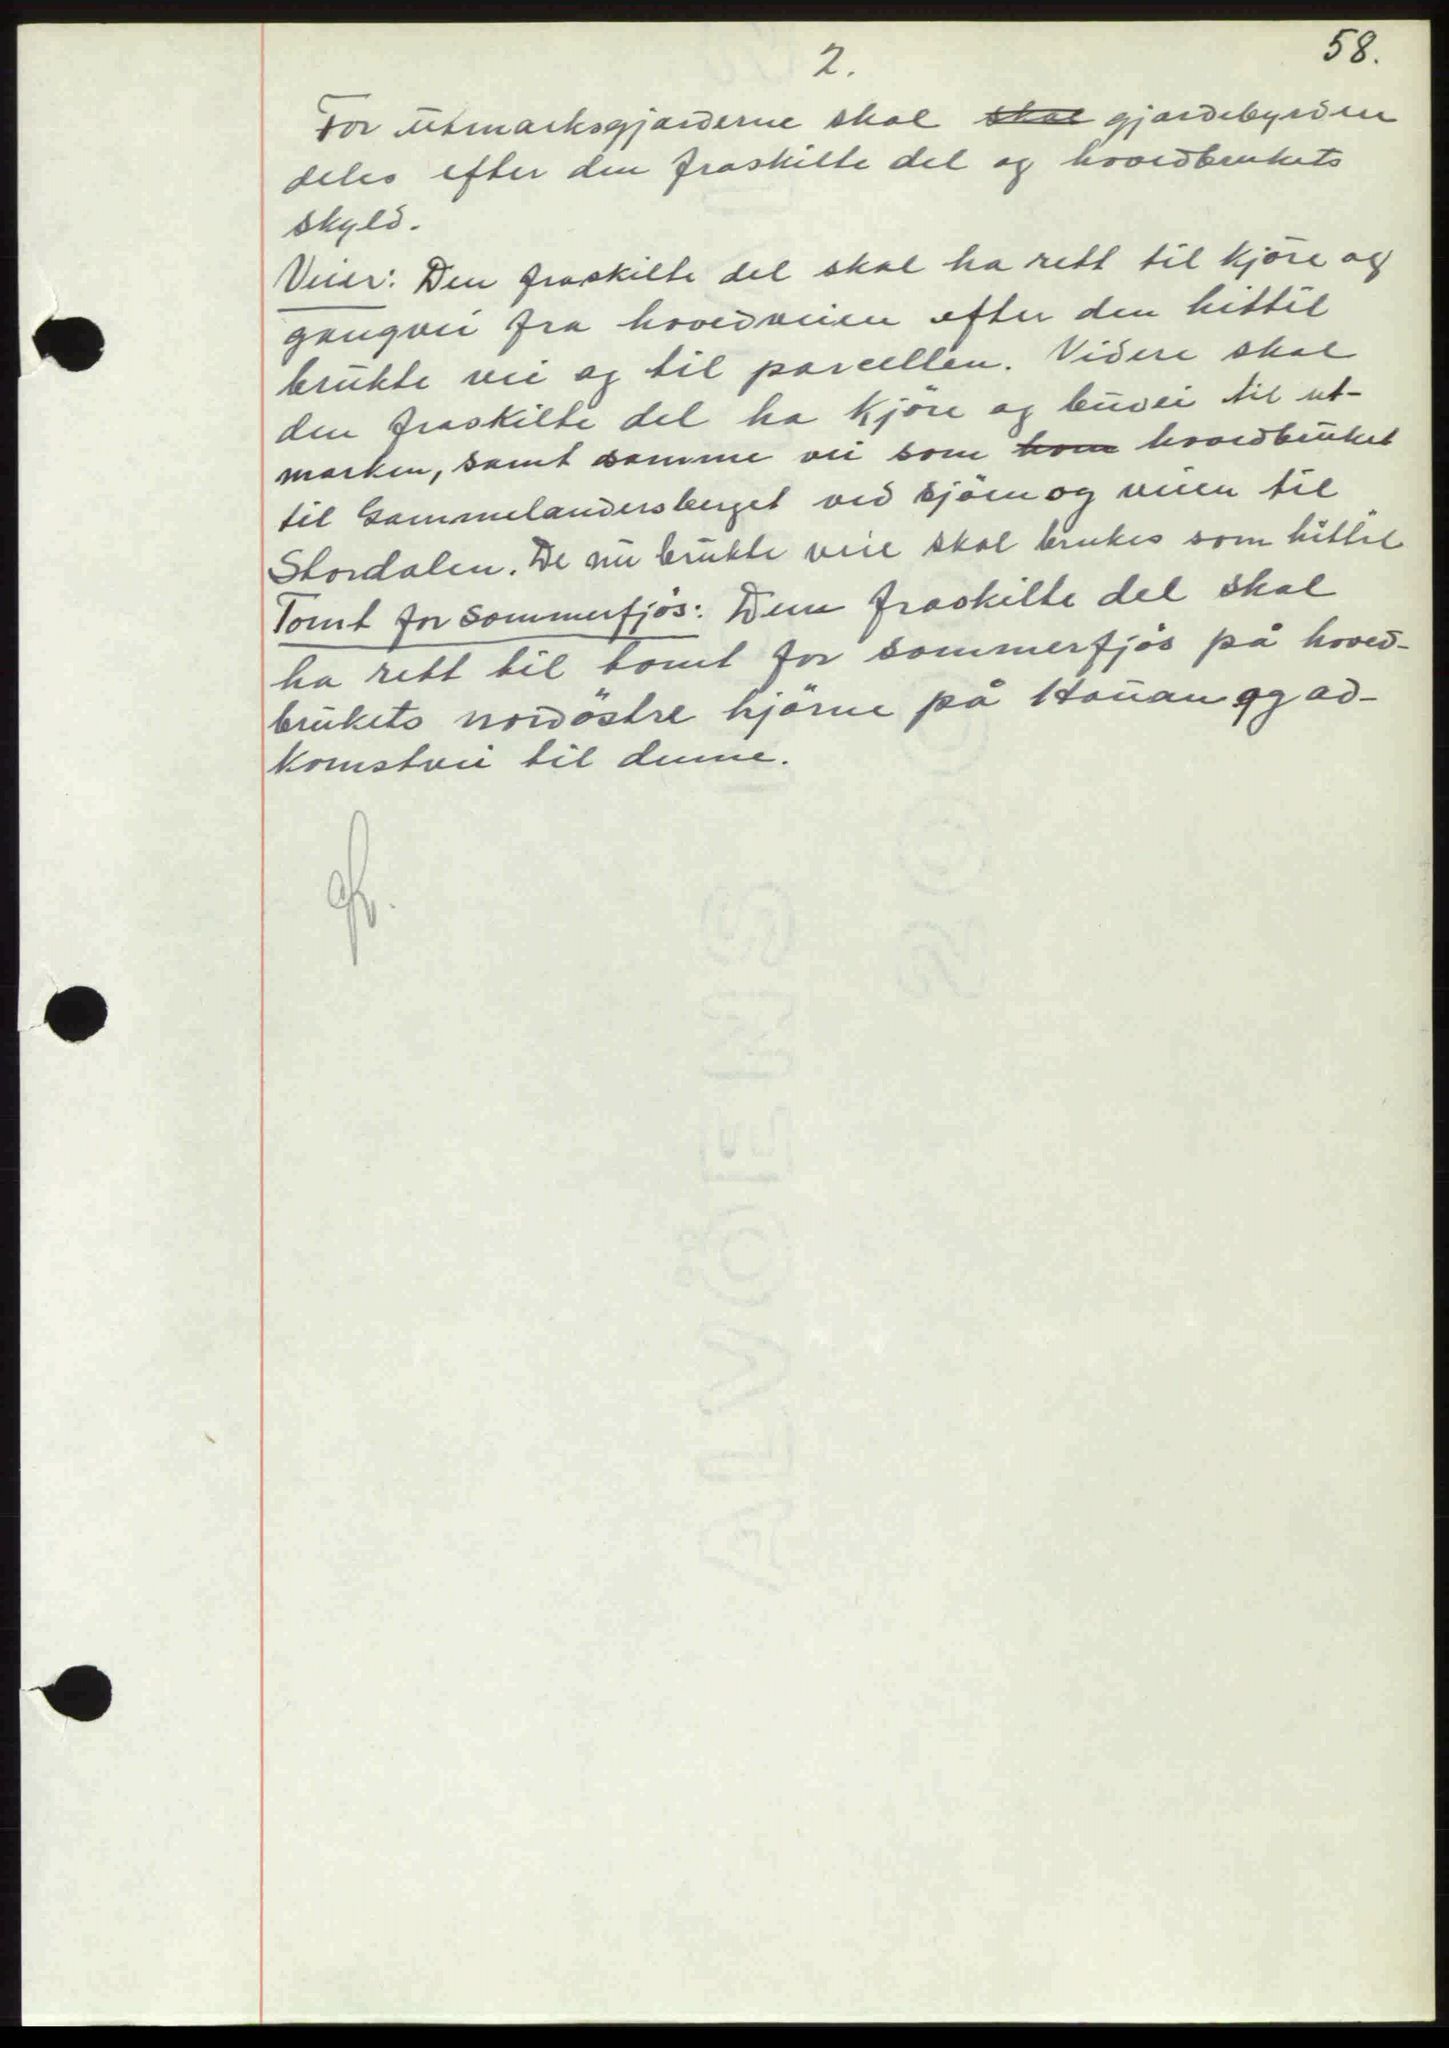 2.
58.
For utmarksgjarderne skal ~~skal~~ gjardebyrden
deles efter den fraskilte del og hovedbrukets
skyld.
Veier: Den fraskilte del skal ha rett til kjöre og
gangvei fra hovedveien efter den hittil
brukte vei og til parcellen. Videre skal
den fraskilte del ha kjöre og buvei til ut-
marken, samt samme vei som ~~hom~~ hovedbruket
til Gammelandersberget ved sjöen og veien til
Stordalen. De nu brukte veie skal brukes som hittil
Tomt for sommerfjös: Den fraskilte del skal
ha rett til tomt for sommerfjös på hoved-
brukets nordöstre hjörne på Haugan og ad-
komstvei til denne.
ALVÖENS